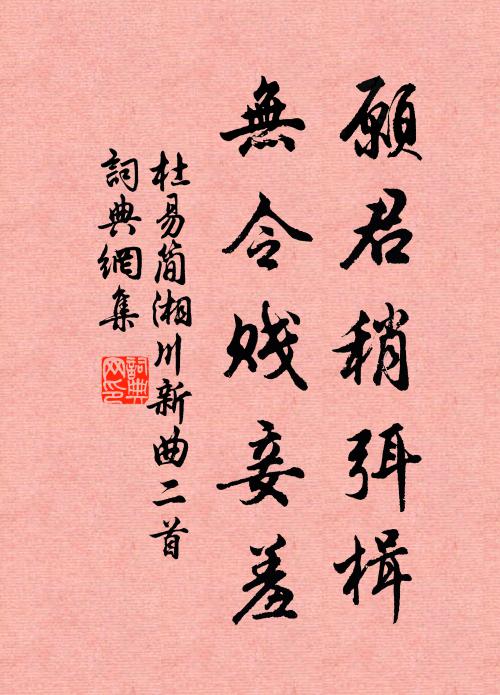 願君稍弭楫
無令賤妾羞
杜易簡湘川新曲二首
詞典網集
詞典网印